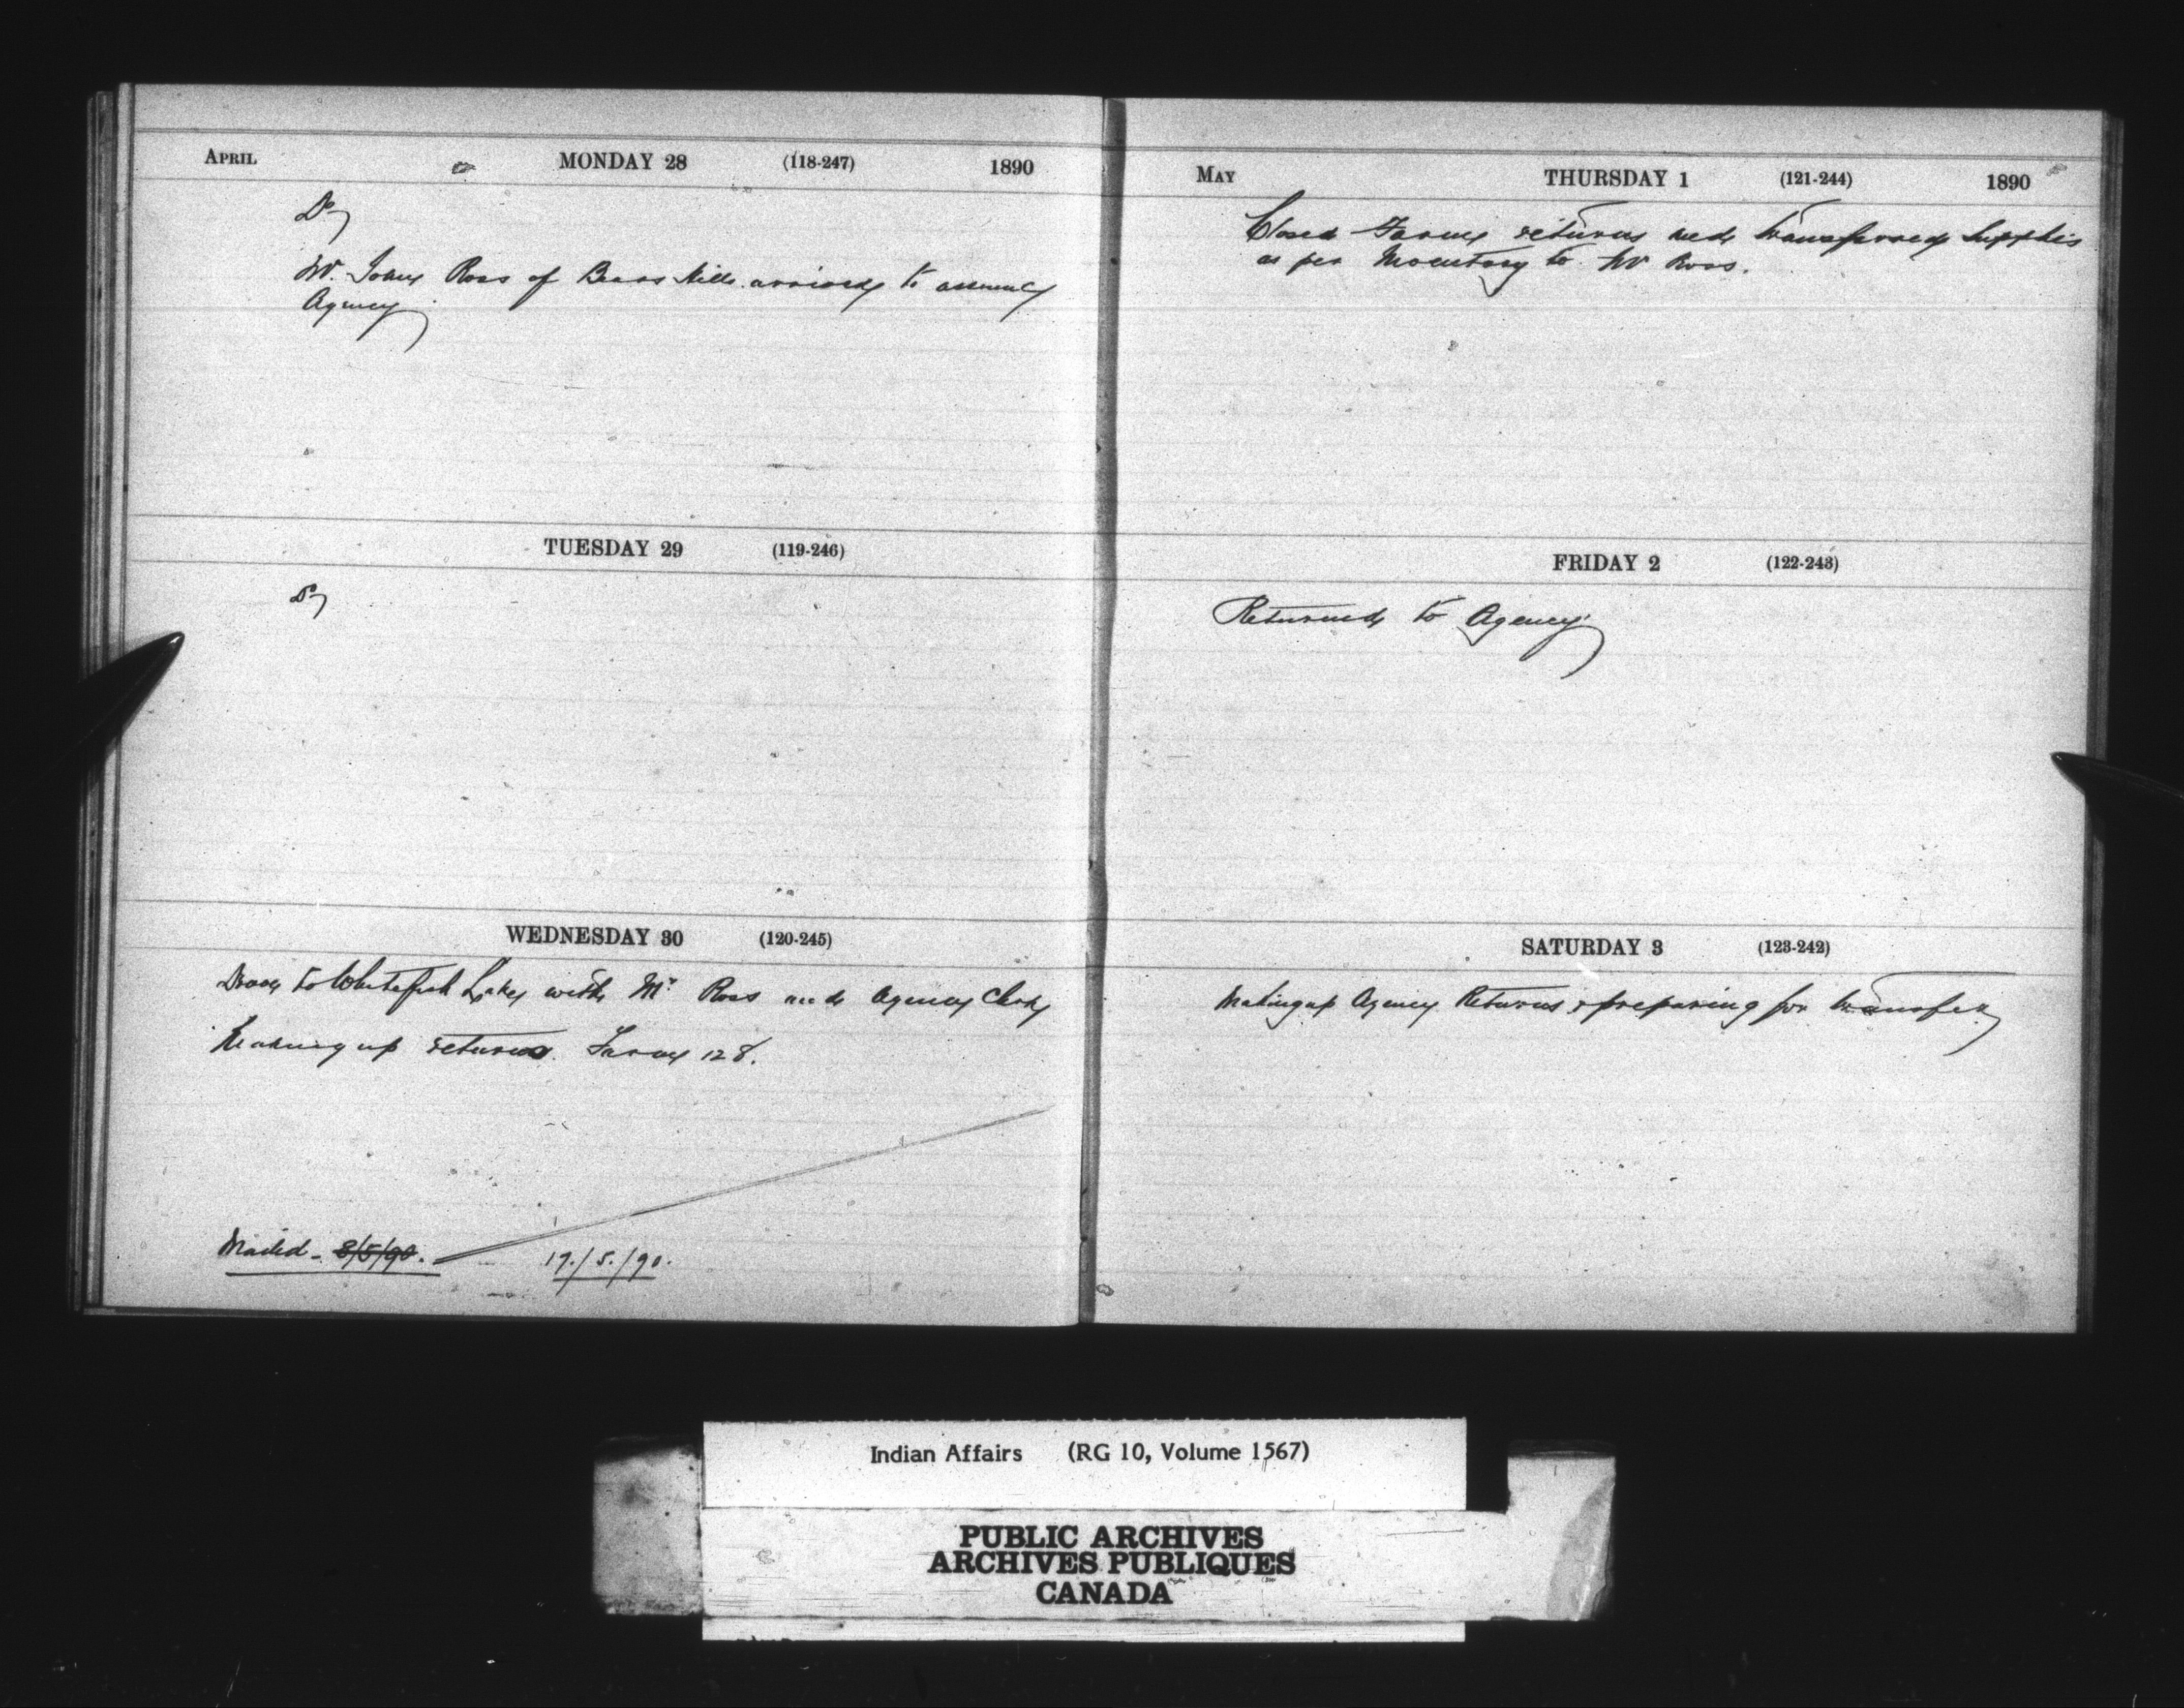 APRIL MONDAY 28 (118-247) 1890
Do
Mr. John Ross of Bears Hills arrived to assume
Agency
TUESDAY 29 (119-246)
Do
WEDNESDAY 30 (120-245)
Drove to Whitefish Lake with Mr Ross and Agency Clerk
Making up returns. Farm 128.
Mailed - 8/5/90. 17./5./90.
MAY THURSDAY 1 (121-244) 1890
Closed Farm returns and transferred Supplies
as per Inventory to Mr Ross.
FRIDAY 2 (122-243)
Returned to Agency.
SATURDAY 3 (123-242)
Making up Agency Returns & preparing for transfer
Indian Affairs (RG 10, Volume 1567)
PUBLIC ARCHIVES
ARCHIVES PUBLIQUES
CANADA